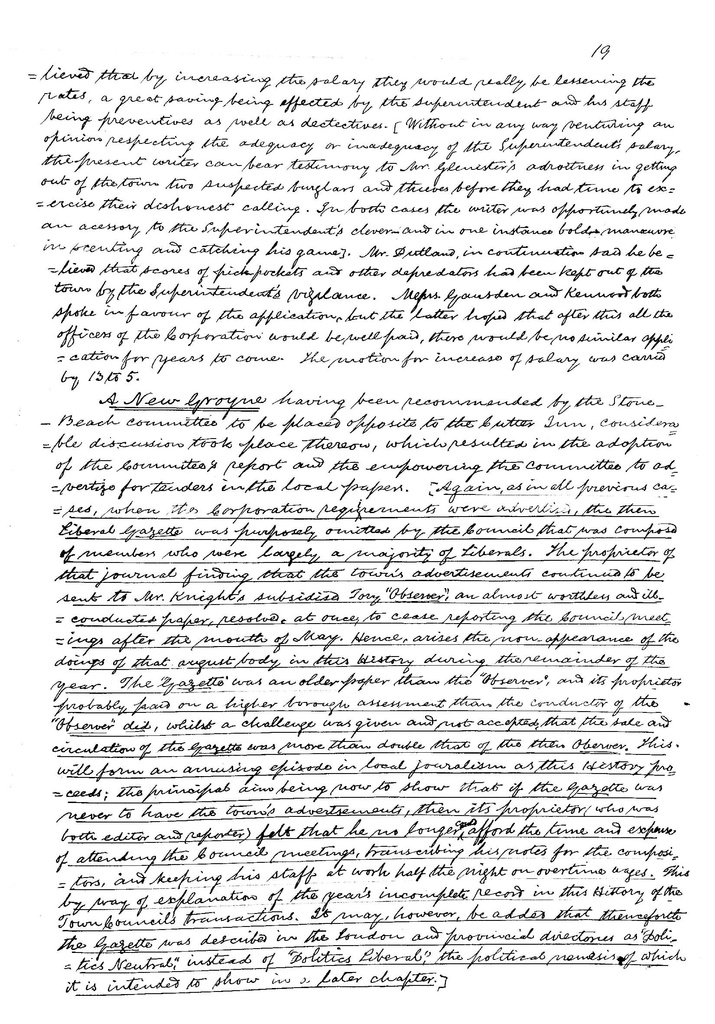 19
=lieved that by increasing the salary they would really be lessening the
rates, a great saving being effected by the superintendent and his staff
being preventives as well as dectectives. [Without in any way venturing an
opinion respecting the adequacy or inadequacy of the Superintendent's salary,
the present writer can bear testimony to Mr. Glenister's adroitness in getting
out of the town two suspected burglars and thieves before they had time to ex=
=ercise their dishonest calling. In both cases the writer was opportunely made
an acessory to the Superintendent's clever and in one instance bolder manœuvre
in scenting and catching his game]. Mr. Putland, in continuation said he be=
=lieved that scores of pickpockets and other depredators had been kept out of the
town by the Superintendent's vigilance. Messrs. Gausden and Kenwood both
spoke in favour of the application, but the latter hoped that after this all the
officers of the Corporation would be well paid, there would be no similar appli
=cation for years to come. The motion for increase of salary was carried
by 13 to 5.
A New Groyne having been recommended by the Stone-
-Beach committee to be placed opposite to the Cutter Inn, considera=
=ble discussion took place thereon, which resulted in the adoption
of the Committee's report and the empowering the committee to ad=
=vertize for tenders in the local papers. [Again, as in all previous ca=
=ses, when the Corporation requirements were advertised, the then
Liberal Gazette was purposely omitted by the Council that was composed
of members who were largely a majority of Liberals. The proprietor of
that journal finding that the town's advertisements continued to be
sent to Mr. Knight's subsidised Tory "Observer", an almost worthless and ill=
=conducted paper, resolved, at once, to cease reporting the Council meet=
=ings after the month of May. Hence, arises the non-appearance of the
doings of that august body in this History during the remainder of the
year. The "Gazette" was an older paper than the "Observer", and its proprietor
probably, paid on a higher borough assessment than the conductor of the
"Observer" did, whilst a challenge was given and not accepted, that the sale and
circulation of the Gazette was more than double that of the then Oberver. This
will form an amusing episode in local journalism as this History pro=
=ceeds; the principal aim being now to show that if the Gazette was
never to have the town's advertsements, then its proprietor (who was
both editor and reporter) felt that he no longer could afford the time and expense
of attending the Council meetings, transcribing his notes for the composi=
=tors, and keeping his staff at work half the night on overtime wages. This
by way of explanation of the year's incomplete record in this History of the
Town Council's transactions. It may, however, be added that thenceforth
the Gazette was described in the London and provincial directories as "Poli=
=tics Neutral," instead of "Politics Liberal," the political nemesis of which
it is intended to show in a later chapter.]